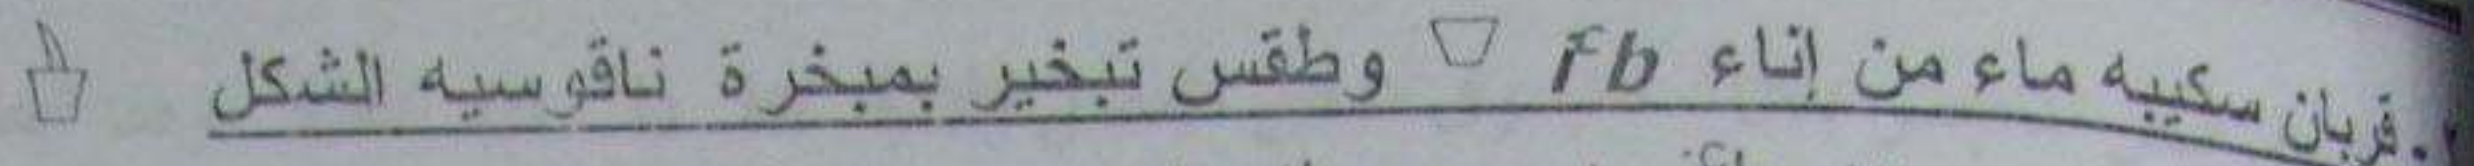 قربان سكيبه ماء من إناء Fb وطقس تبخير بمبخرة ناقوسيه الشكل